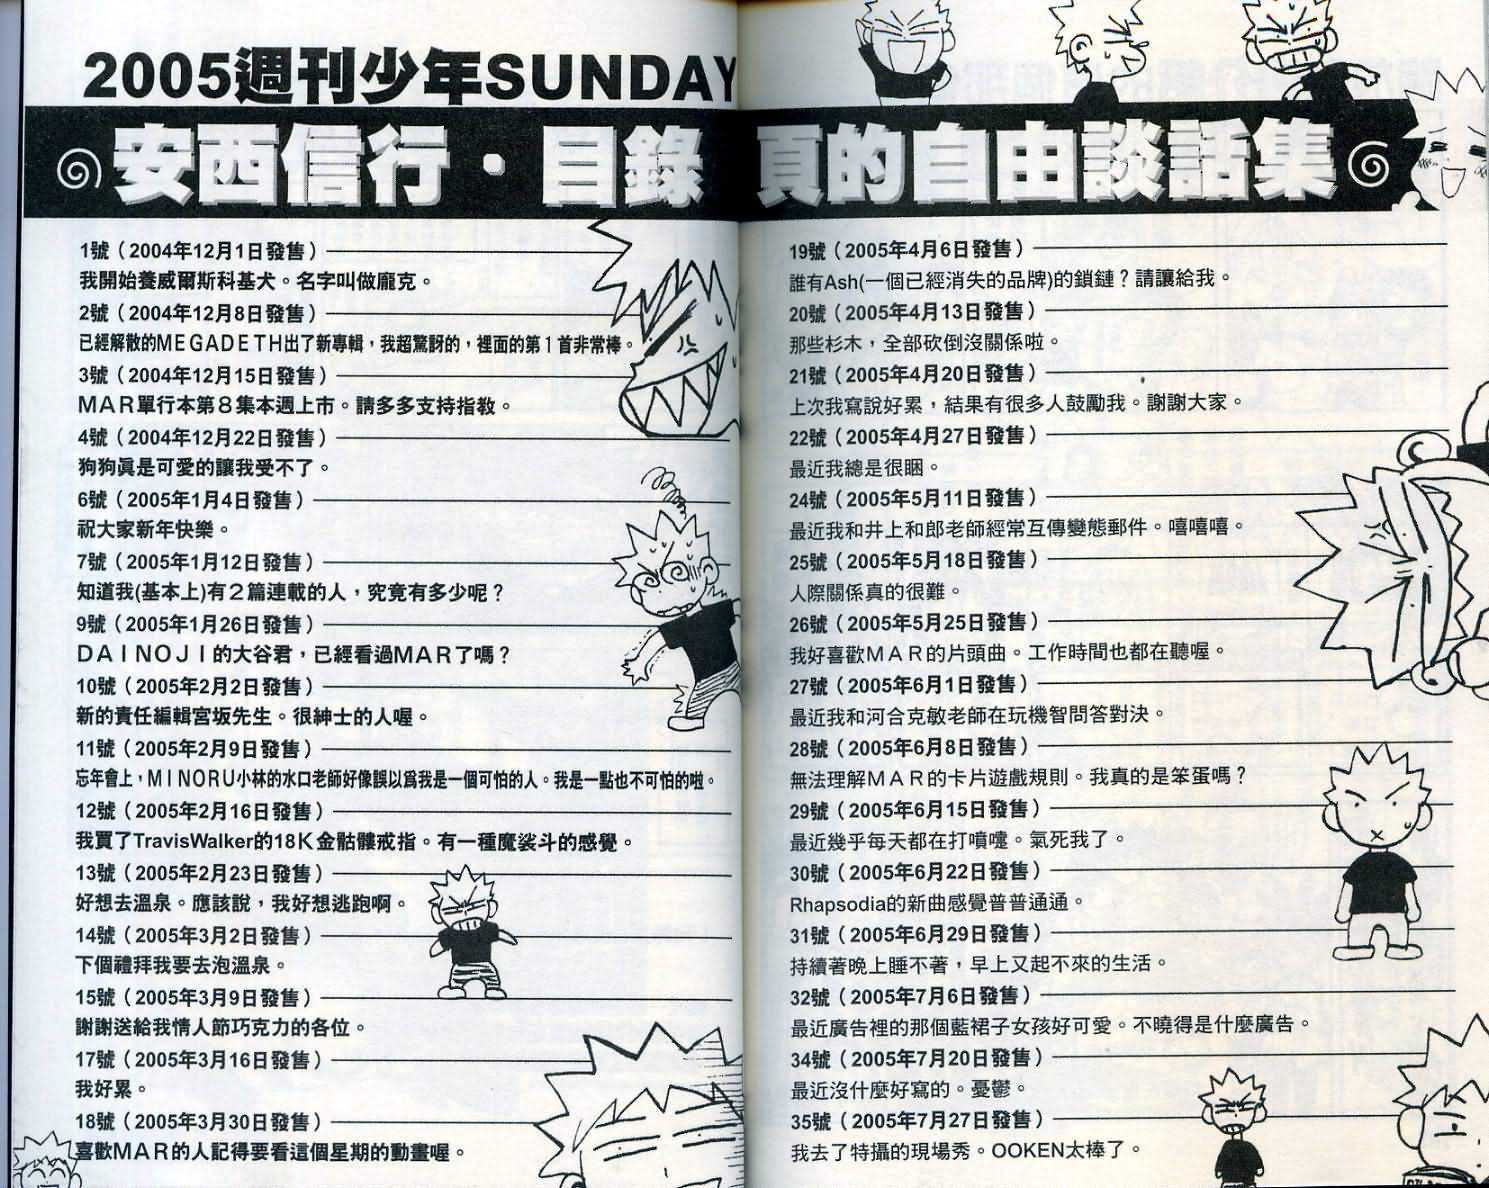 2005週刊少年SUNDAY
安西信行・目錄 真的自由談話集
1號（2004年12月1日發售）
我開始養威爾斯科基犬。名字叫做龐克。
2號（2004年12月8日發售）
已經解散的MEGADETH出了新專輯，我超驚訝的，裡面的第1首非常棒。
3號（2004年12月15日發售）
MAR單行本第8集本週上市。請多多支持指敎。
4號（2004年12月22日發售）
狗狗眞是可愛的讓我受不了。
6號（2005年1月4日發售）
祝大家新年快樂。
7號（2005年1月12日發售）
知道我(基本上)有2篇連載的人，究竟有多少呢？
9號（2005年1月26日發售）
DAINOJI的大谷君，已經看過MAR了嗎？
10號（2005年2月2日發售）
新的責任編輯宮坂先生。很紳士的人喔。
11號（2005年2月9日發售）
忘年會上，MINORU小林的水口老師好像誤以爲我是一個可怕的人。我是一點也不可怕的啦。
12號（2005年2月16日發售）
我買了TravisWalker的18K金骷髏戒指。有一種魔裟斗的感覺。
13號（2005年2月23日發售）
好想去溫泉。應該說，我好想逃跑啊。
14號（2005年3月2日發售）
下個禮拜我要去泡溫泉。
15號（2005年3月9日發售）
謝謝送給我情人節巧克力的各位。
17號（2005年3月16日發售）
我好累。
18號（2005年3月30日發售）
喜歡MAR的人記得要看這個星期的動畫喔。
19號（2005年4月6日發售）
誰有Ash(一個已經消失的品牌)的鎖鏈？請讓給我。
20號（2005年4月13日發售）
那些杉木，全部砍倒沒關係啦。
21號（2005年4月20日發售）
上次我寫說好累，結果有很多人鼓勵我。謝謝大家。
22號（2005年4月27日發售）
最近我總是很睏。
24號（2005年5月11日發售）
最近我和井上和郎老師經常互傳變態郵件。嘻嘻嘻。
25號（2005年5月18日發售）
人際關係真的很難。
26號（2005年5月25日發售）
我好喜歡MAR的片頭曲。工作時間也都在聽喔。
27號（2005年6月1日發售）
最近我和河合克敏老師在玩機智問答對決。
28號（2005年6月8日發售）
無法理解MAR的卡片遊戲規則。我真的是笨蛋嗎？
29號（2005年6月15日發售）
最近幾乎每天都在打噴嚏。氣死我了。
30號（2005年6月22日發售）
Rhapsodia的新曲感覺普普通通。
31號（2005年6月29日發售）
持續著晚上睡不著，早上又起不來的生活。
32號（2005年7月6日發售）
最近廣告裡的那個藍裙子女孩好可愛。不曉得是什麼廣告。
34號（2005年7月20日發售）
最近沒什麼好寫的。憂鬱。
35號（2005年7月27日發售）
我去了特攝的現場秀。OOKEN太棒了。